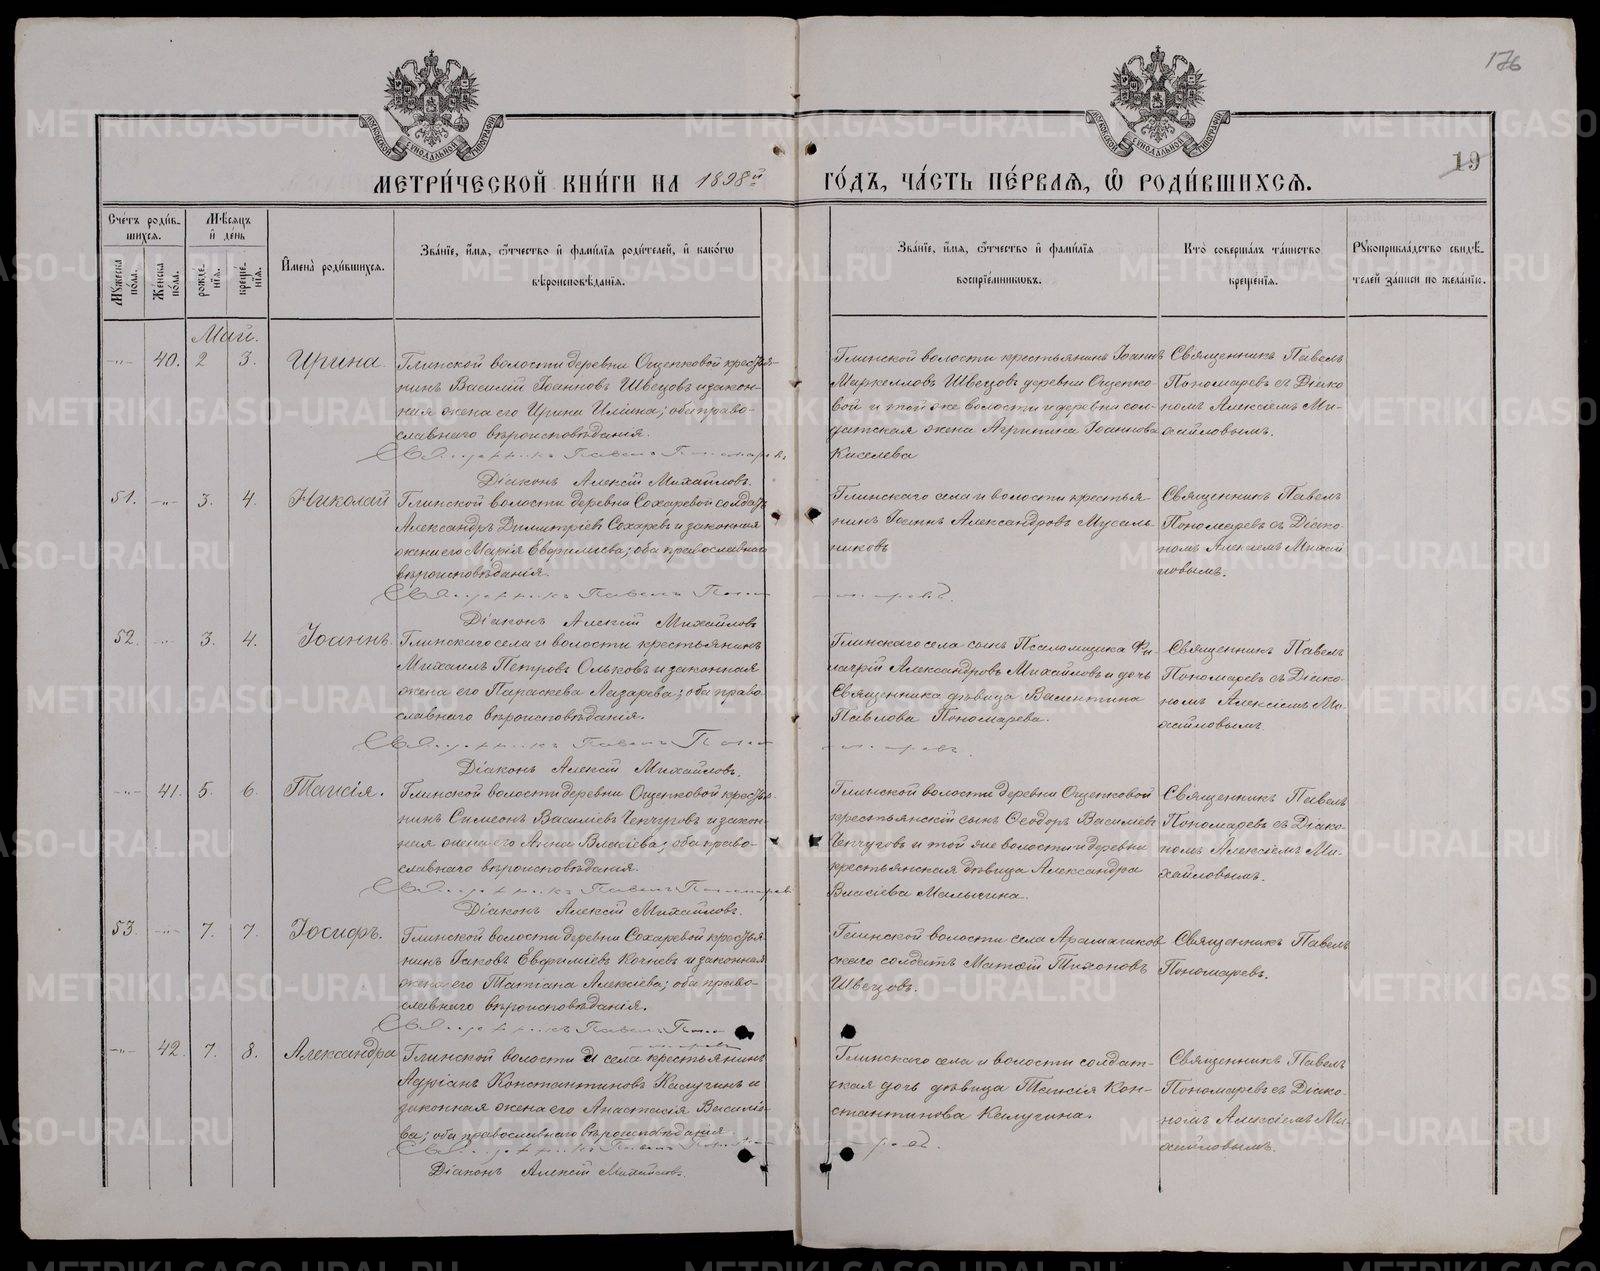 176
19
МОСКОВСКОЙ СѴНОДАЛЬНОЙ ТИПОГРАФІИ
МОСКОВСКОЙ СѴНОДАЛЬНОЙ ТИПОГРАФІИ
МЕТРИ́ЧЕСКОЙ КНИ́ГИ НА 1898й ГО́ДЪ, ЧА́СТЬ ПЕ́РВАЯ, Ѡ РОДИ́ВШИХСЯ.
Сче́тъ роди́в-
шихся.
Мꙋжеска по́ла.
Женска по́ла.
Мѣсяцъ
и де́нь
рожде-
нія.
креще-
нія.
Имена̀ роди́вшихся.
Зва́ніе, и́мя, ѻ҆́тчество и фами́лія роди́телей, и како́гѡ
вѣроисповѣ́данія.
Зва́ніе, и́мя, ѻ҆́тчество и фами́лія
воспріе́мникѡвъ.
Кто̀ соверша́лъ та́инство
креще́нія.
Рꙋкоприкла́дство свидѣ́-
телей за́писи по жела́нію.
Май.
-„- 40. 2 3. Ирина.
Глинской волости деревни Ощепковой крестья-
нинъ Василій Іоанновъ Швецовъ и закон-
ная жена его Ирина Иліина; оба право-
славнаго вѣроисповѣданія.
Священникъ Павелъ Пономаревъ
Діаконъ Алексій Михайловъ.
Глинской волости крестьянинъ Іоаннъ
Маркелловъ Швецовъ деревни Ощепко-
вой и той же волости и деревни сол-
датская жена Агрипина Іоаннова
Киселева
Священникъ Павелъ
Пономаревъ съ Діако-
номъ Алексіемъ Ми-
хайловымъ.
51. -„- 3. 4. Николай
Глинской волости деревни Сохаревой солдатъ
Александръ Димитріевъ Сохаревъ и законная
жена его Марія Евфиміева; оба православнаго
вѣроисповѣданія.
Священникъ Павелъ Пономаревъ.
Діаконъ Алексій Михайловъ
Глинскаго села и волости крестья-
нинъ Іоаннъ Александровъ Мусаль-
никовъ
Священникъ Павелъ
Пономаревъ съ Діако-
номъ Алексіемъ Михай
ловымъ.
52. -„- 3. 4. Іоаннъ.
Глинскаго села и волости крестьянинъ
Михаилъ Петровъ Ольковъ и законная
жена его Параскева Лазарева; оба право-
славнаго вѣроисповѣданія.
Священникъ Павелъ Пономаревъ.
Діаконъ Алексій Михайловъ.
Глинскаго села сынъ Псаломщика
Александровъ Михайловъ и дочь
Священника дѣвица Валентина
Павлова Пономарева.
Священникъ Павелъ
Пономаревъ съ Діако-
номъ Алексіемъ Ми-
хайловымъ.
-„- 41. 5. 6. Таисія.
Глинской волости деревни Ощепковой крестья-
нинъ Симеонъ Василіевъ Чепчуговъ и закон-
ная жена его Анна Власіева; оба право-
славнаго вѣроисповѣданія.
Священникъ Павелъ Пономаревъ
Діаконъ Алексій Михайловъ.
Глинской волости деревни Ощепковой
крестьянскій сынъ Ѳеодоръ Василіевъ
Чепчуговъ и той же волости и деревни
крестьянская дѣвица Александра
Власіева Малыгина.
Священникъ Павелъ
Пономаревъ съ Діако-
номъ Алексіемъ Ми-
хайловымъ.
53. -„- 7. 7. Іосифъ.
Глинской волости деревни Сохаревой крестья-
нинъ Іаковъ Евфиміевъ Кочневъ и законная
жена его Татіана Алексіева; оба право-
славнаго вѣроисповѣданія.
Священникъ Павелъ Пономаревъ
Глинской волости села Арамашков-
скаго солдатъ Матѳій Тихоновъ
Швецовъ.
Священникъ Павелъ
Пономаревъ.
-„- 42. 7. 8. Александра
Глинской волости и села крестьянинъ
Адріанъ Константиновъ Калугинъ и
законная жена его Анастасія Василіе-
ва; оба православнаго вѣроисповѣданія.
Священникъ Павелъ Пономаревъ.
Діаконъ Алексій Михайловъ.
Глинскаго села и волости солдат-
ская дочь дѣвица Таисія Кон-
стантинова Калугина.
Священникъ Павелъ
Пономаревъ съ Діако-
номъ Алексіемъ Ми-
хайловымъ.
METRIKI.GASO-URAL.RU